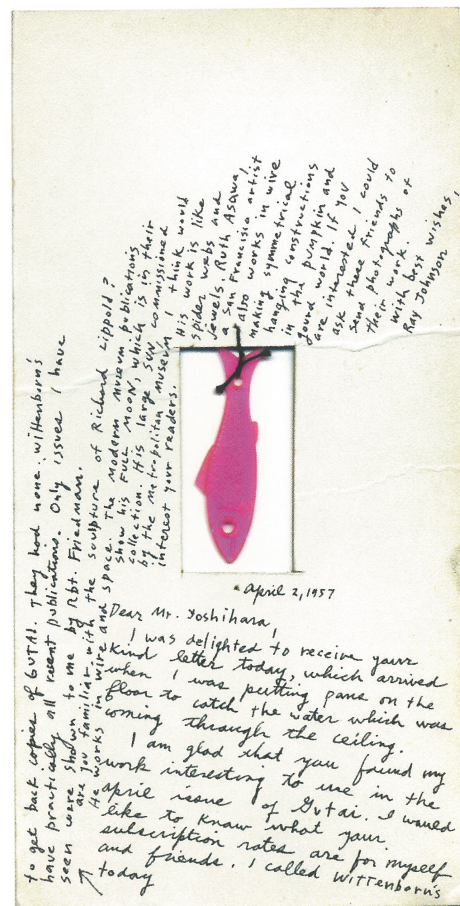 April 2, 1957
Dear Mr. Yoshihara,
I was delighted to receive your
kind letter today, which arrived
when I was putting pans on the
floor to catch the water which was
coming through the ceiling.
I am glad that you found my
work interesting to use in the
April issue of Gutai. I would
like to know what your
subscription rates are for myself
and friends. I called Wittenborn's
today
to get back copies of GUTAI. They had none. Wittenborn's
have practically all recent publications. Only issues I have
seen were shown to me by Rbt. Friedman.
Are you familiar with the sculpture of Richard Lippold?
He works in wire and space. The Modern Museum publications
show his FULL MOON, which is in their
collection. His large SUN, commissioned
by the Metropolitan Museum I think would
interest your readers.
His work is like
spider webs and
jewels. Ruth Asawa,
a San Francisco artist
also works in wire
making symmetrical
hanging constructions
in the pumpkin and
gourd world. If you
are interested I could
ask these friends to
send photographs of
their work.
With best wishes,
Ray Johnson